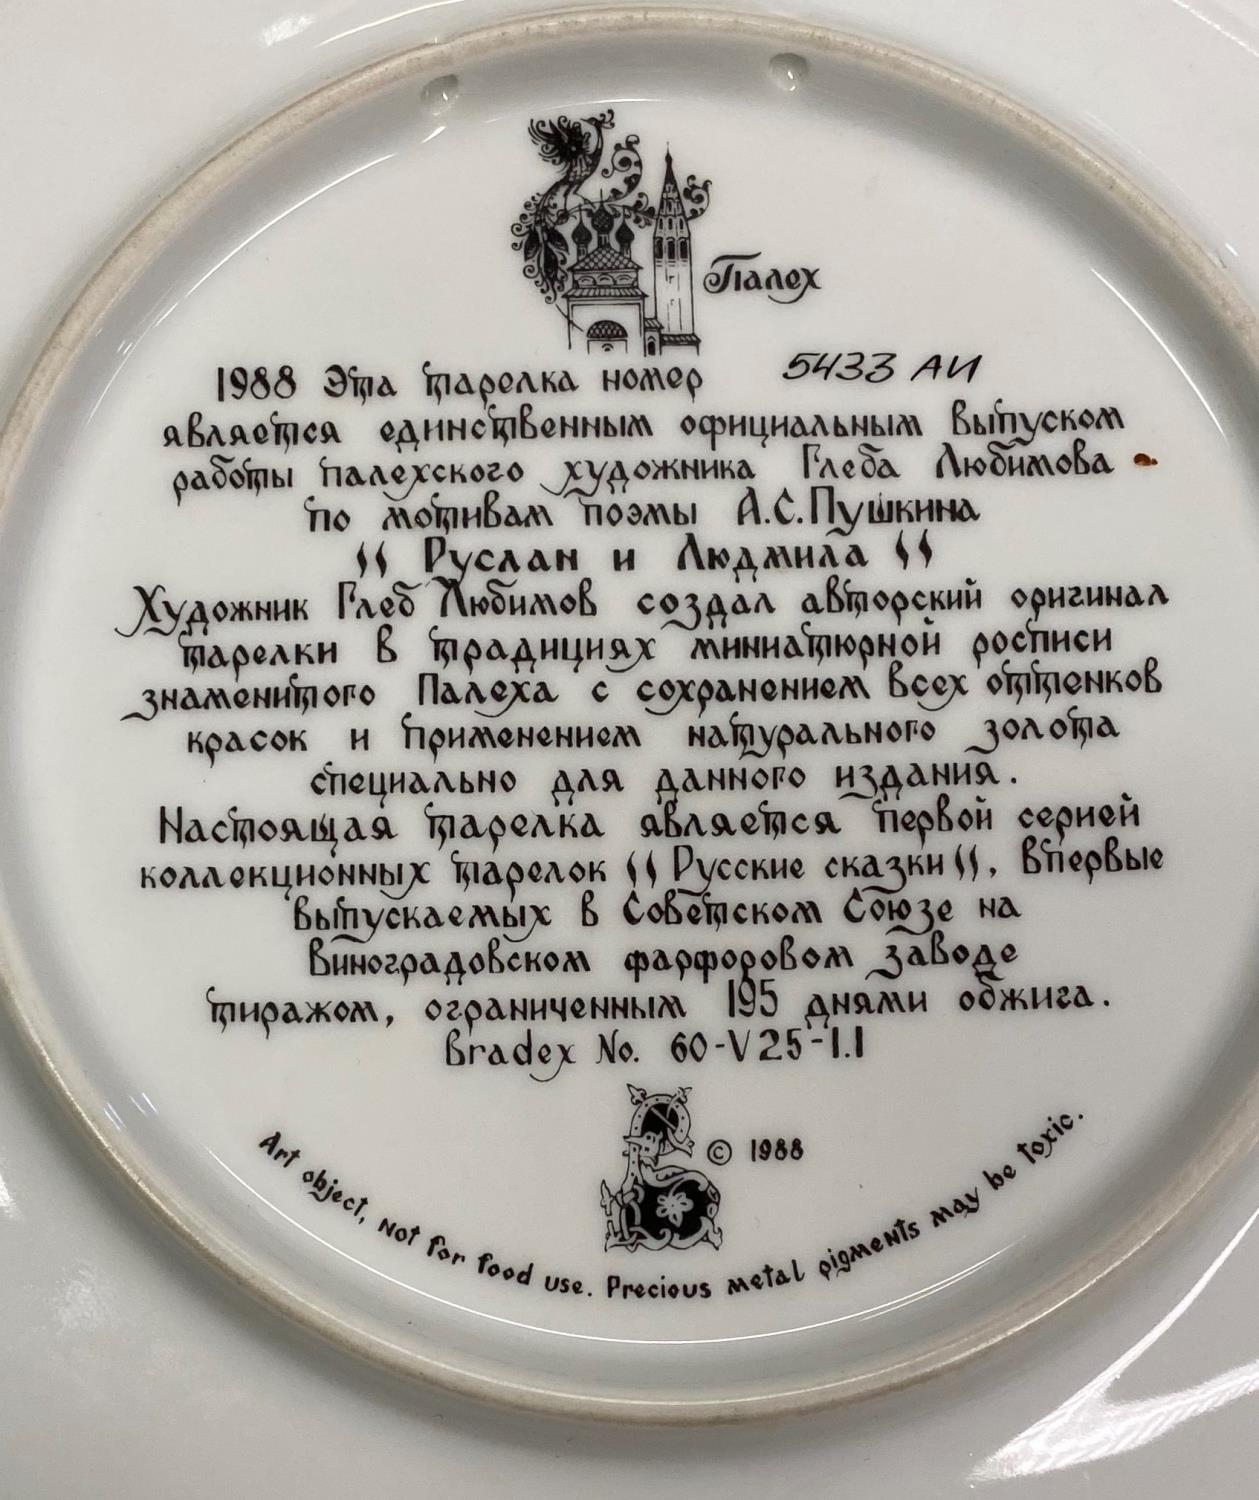 Палех
1988 Эта тарелка номер 5433 АИ
является единственным официальным выпуском
работы палехского художника Глеба Любимова
по мотивам поэмы А.С.Пушкина
" Руслан и Людмила "
Художник Глеб Любимов создал авторский оригинал
тарелки в традициях миниатюрной росписи
знаменитого Палеха с сохранением всех оттенков
красок и применением натурального золота
специально для данного издания.
Настоящая тарелка является первой серией
коллекционных тарелок "Русские сказки", впервые
выпускаемых в Советском Союзе на
Виноградовском фарфоровом заводе
тиражом, ограниченным 195 днями обжига.
Bradex No. 60-V25-1.1
© 1988
Art object, not for food use. Precious metal pigments may be toxic.